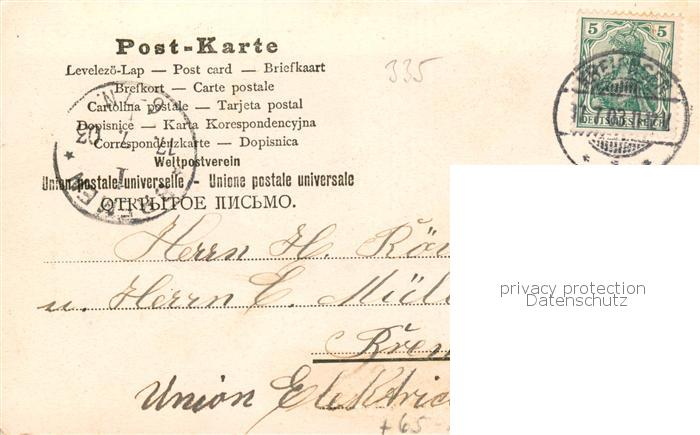 Post-Karte
335
Levelező-Lap — Post card — Briefkaart
Brefkort — Carte postale
Cartolina postale — Tarjeta postal
Dopisnice — Karta Korespondencyjna
Correspondenzkarte — Dopisnica
Weltpostverein
Union postale universelle - Unione postale universale
ОТКРЫТОЕ ПИСЬМО.
5 5
DEUTSCHES REICH
BREMEN
Herrn H.
u. Herrn C. Mül
Brem
Union Elektric
+65-
privacy protection
Datenschutz